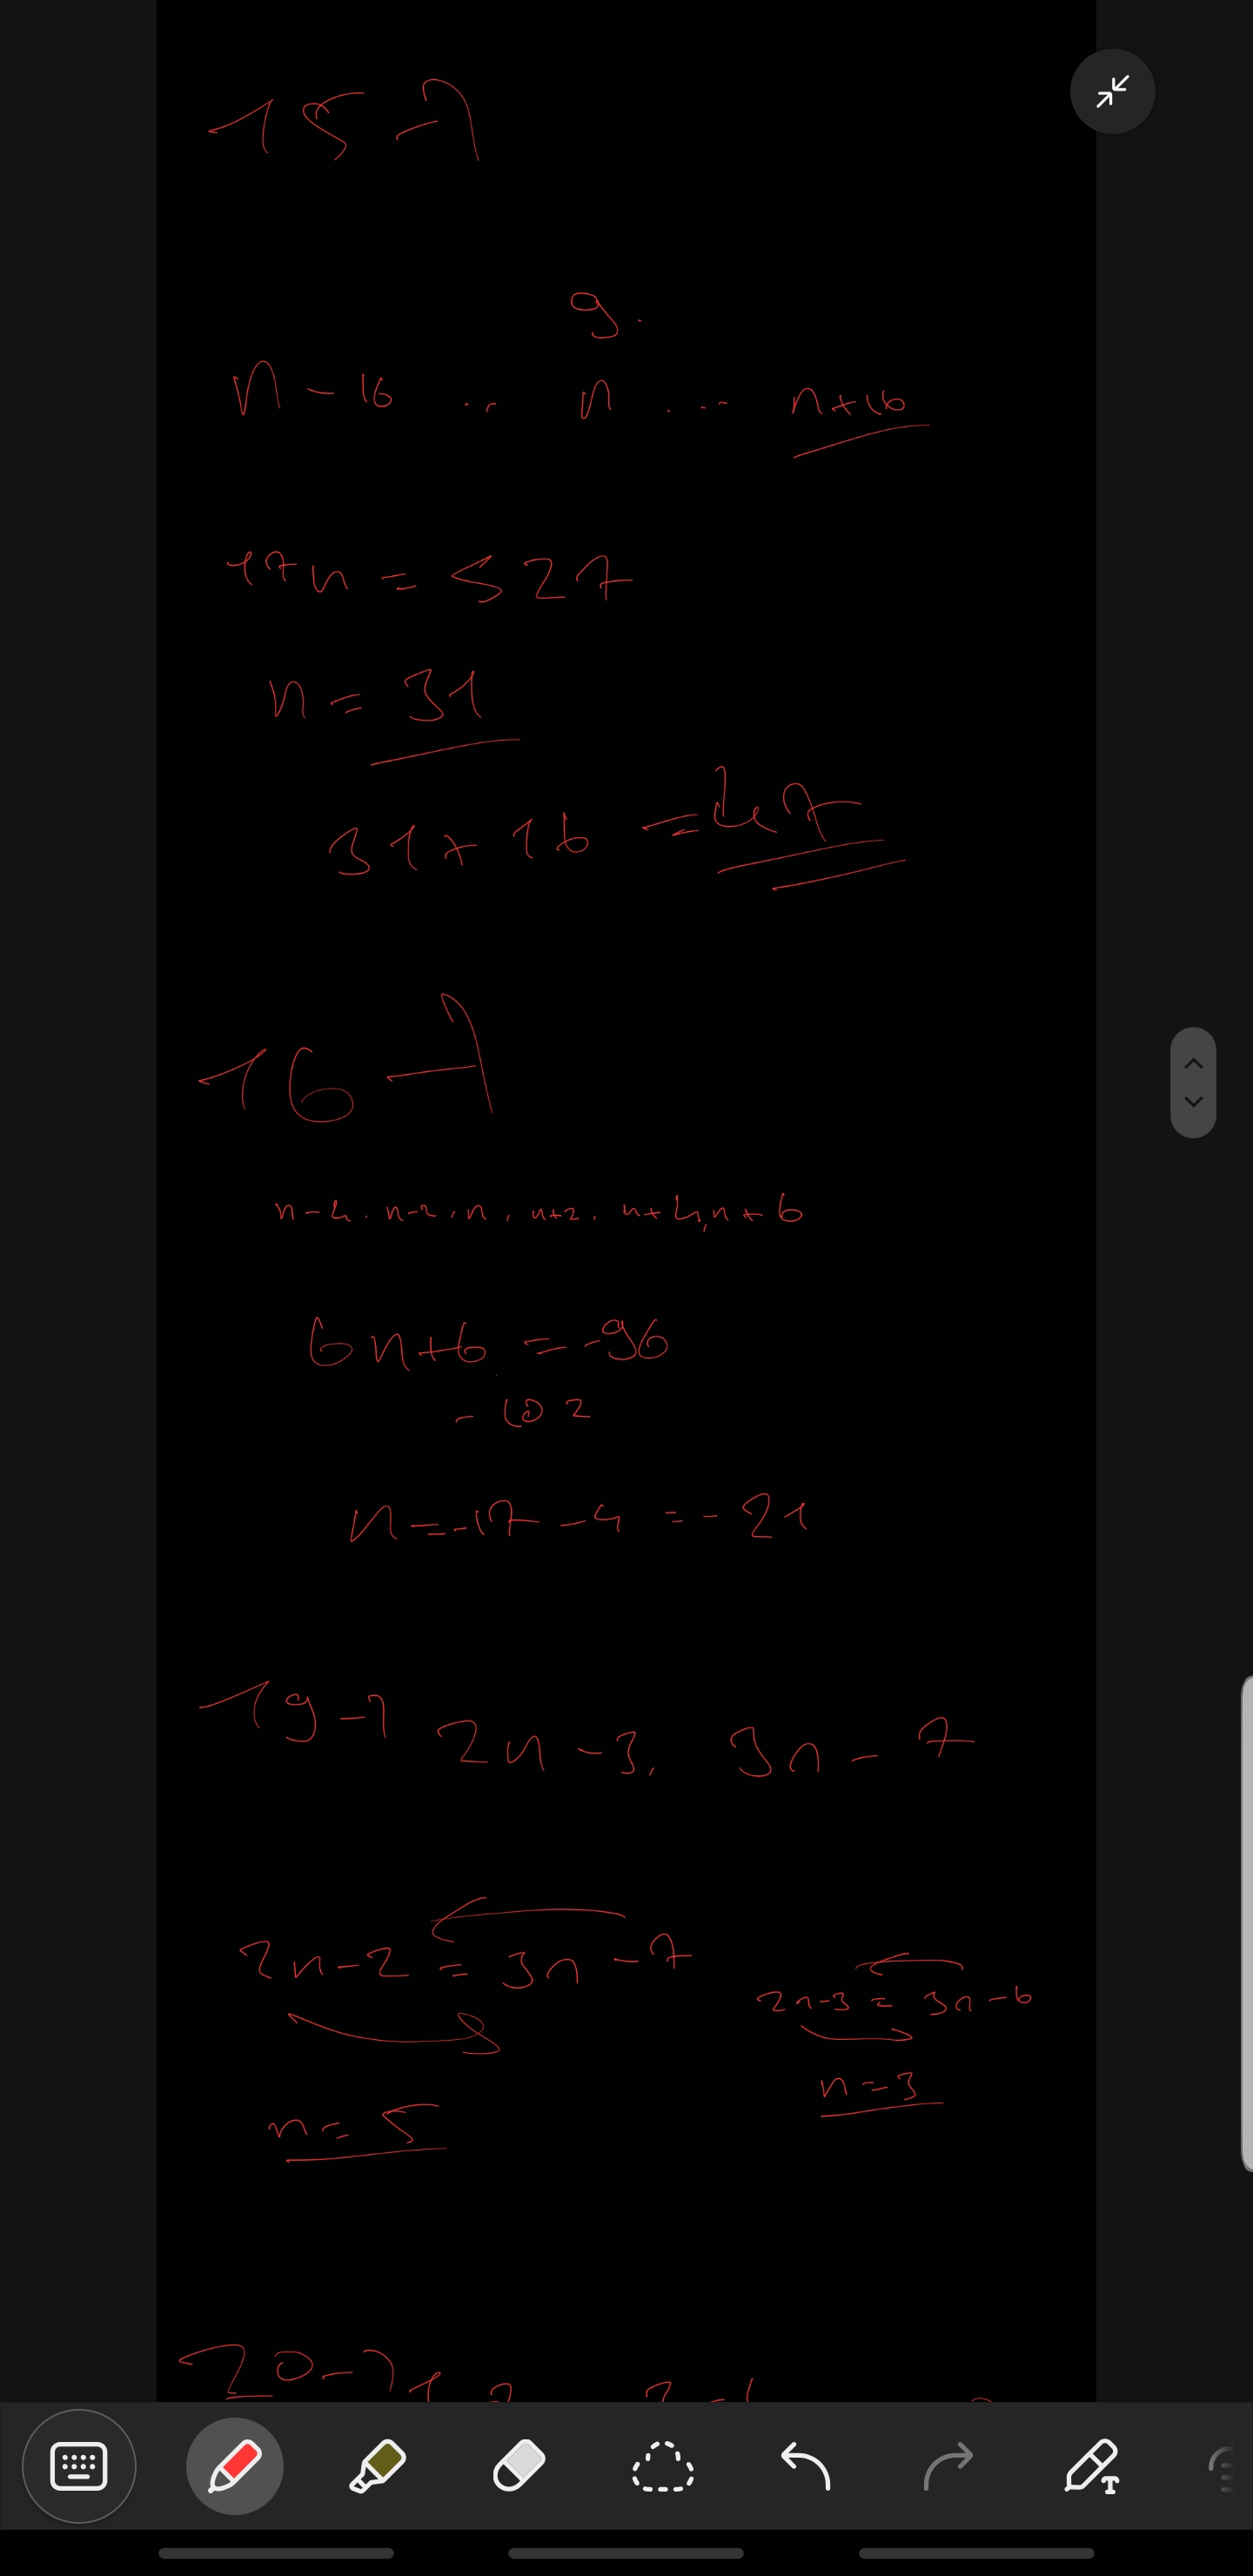 15-)
9.
n-16 ... n .... n+16
17n = 527
n = 31
31+16 = 47
16-)
n-4, n-2, n, n+2, n+4, n+6
6n+6 = -96
-102
n = -17 - 4 = -21
19-) 2n-3, 3n-7
2n-2 = 3n-7
2n-3 = 3n-6
n = 3
n = 5
20-)
T